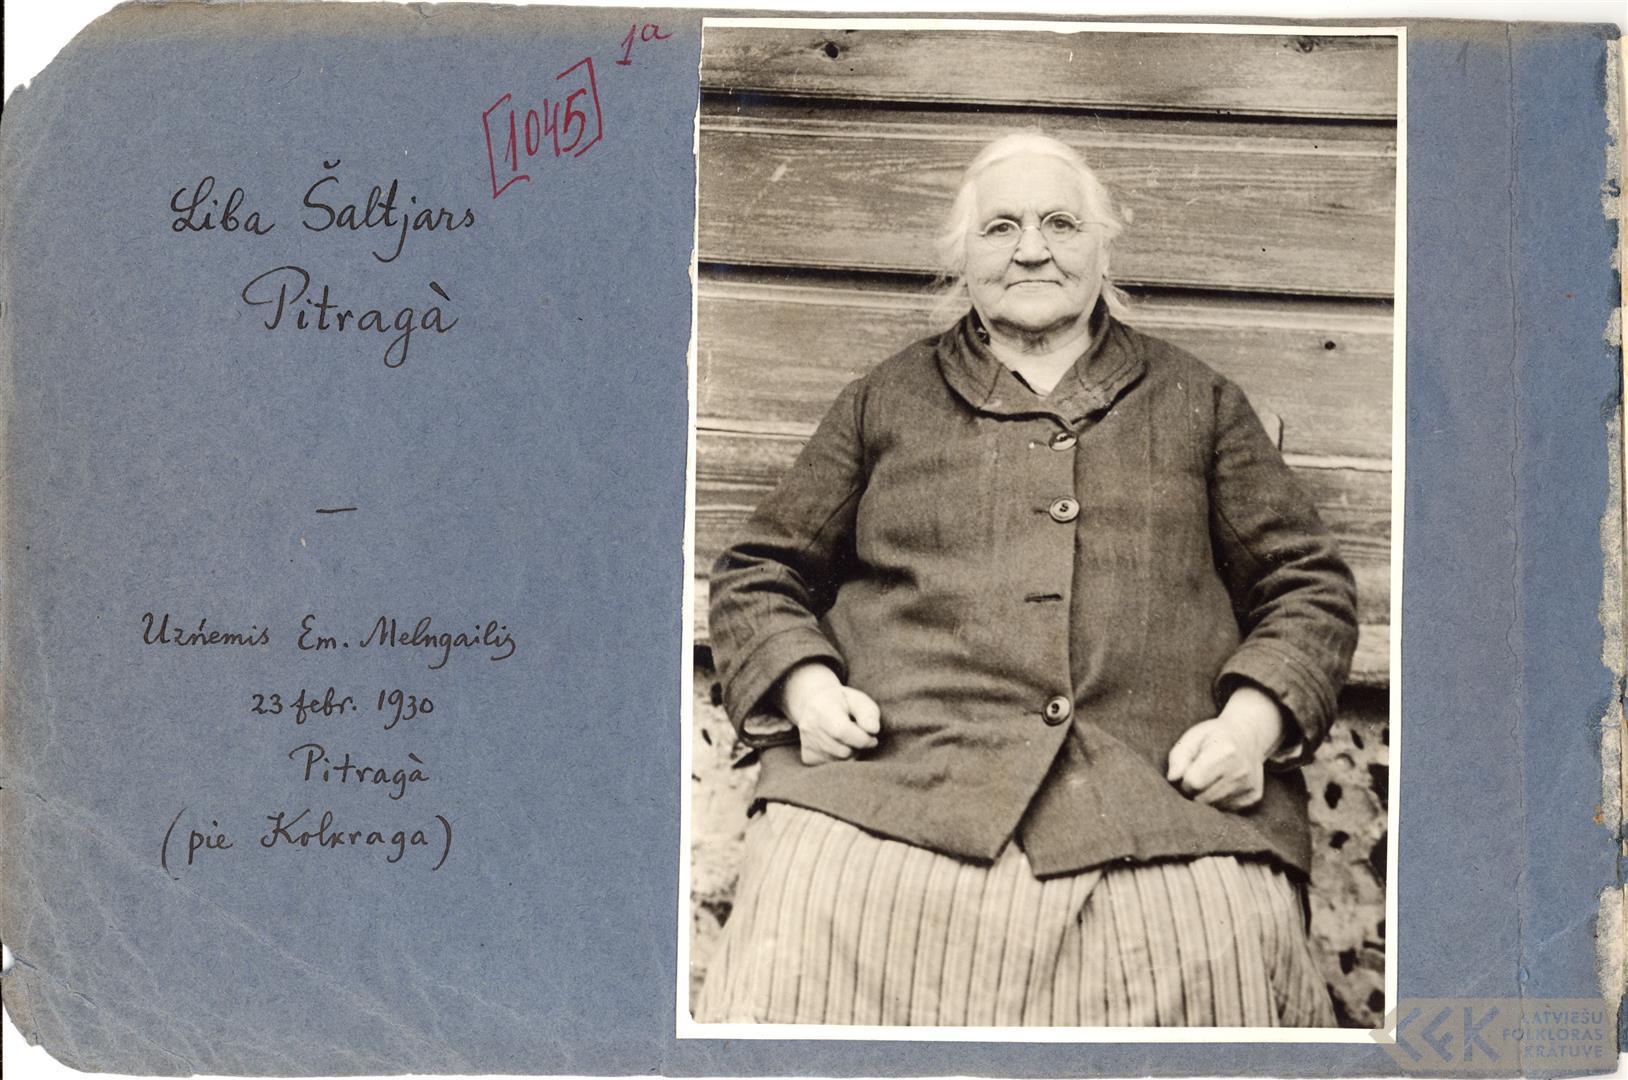 1a
[1045]
Liba Šaltjars
Pitragà
—
Uzńemis Em. Melngailis
23 febr. 1930
Pitragà
(pie Kolkraga)
LFK
LATVIEŠU
FOLKLORAS
KRĀTUVE